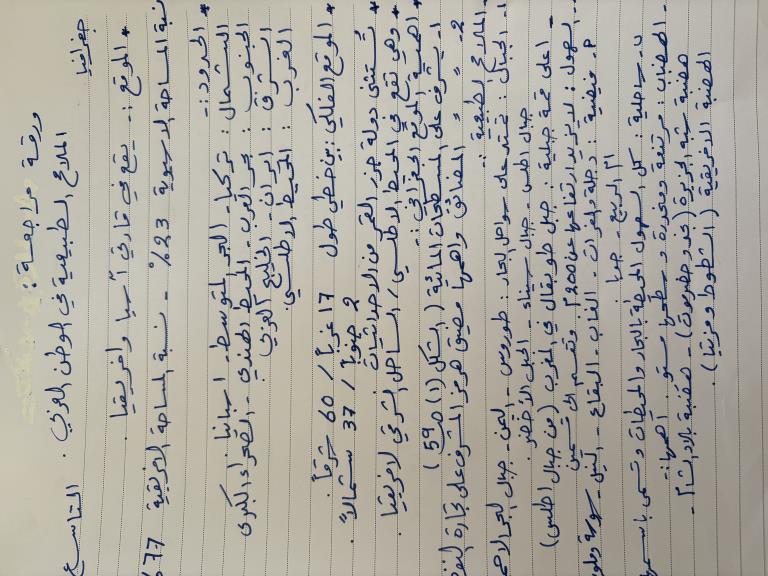 ورقة مراجعة :
جغرافيا الملامح الطبيعية في الوطن العربي . التاسع
* الموقع :- يقع في قارتي آسيا وافريقيا .
نسبة المساحة الآسيوية 23% - نسبة المساحة الافريقية 77
* الحدود :-
الشمال : تركيا - البحر المتوسط - اسبانيا .
الجنوب : بحر العرب - المحيط الهندي - الصحراء الكبرى
الشرق : ايران - الخليج العربي
الغرب : المحيط الاطلسي .
* الموقع الفلكي : بين خطي طول 17 غرباً / 60 شرقاً .
2 جنوباً / 37 شمالاً .
* تستثنى دولة جزر القمر من الاحداثيات
* وهي تقع في المحيط الاطلسي / الساحل الشرقي لافريقيا .
* اهمية الموقع الجغرافي :-
1- يشرف على المسطحات المائية ( الشكل (1) ص 59 )
2- " " المضائق واهمها مضيق هرمز المشرف على تجارة النفط
* الملامح الطبيعية :
1- الجبال : تمتد على سواحل البحار : طوروس - اليمن - جبال البحر الاحمر
جبال اطلس - جبال سيناء - الجبل الأخضر .
اعلى قمة جبلية : جبل طوبقال في المغرب ( من جبال اطلس )
- السهول : لا يزيد ارتفاعها عن 200 م وتقسم الى قسمين
م. فيضية : دجلة والفرات - الغاب - البقاع - النيل -
ام الربيع - جوبا
ب- ساحلية : كل السهول المحيطة بالبحار والمحيطات وتسمى باسمها
- الهضاب : مرتفعة ومنحدرة و سطحها مستو . اهمها :-
هضبة شبه الجزيرة ( نجد وحضرموت ) - هضبة بلاد الشام -
الهضبة الافريقية ( الشطوط ومرتينا ) .